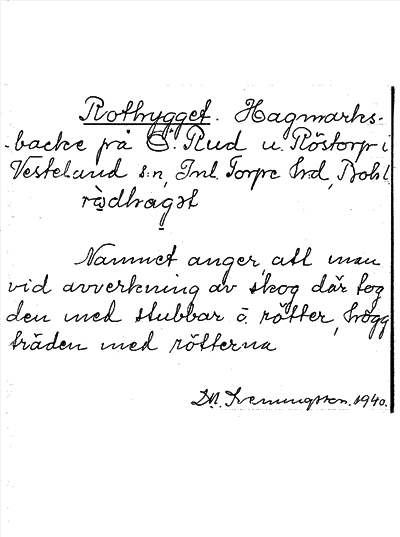 Rothygget. Hagmarks-
backe på Ö. Rud u. Röstorp i
Vesteland s:n, Inl. Torpe hd, Bohl
ròdhagət
Namnet anger, att man
vid avverkning av skog där tog
den med stubbar o. rötter, högg
träden med rötterna
D.N. Svenningsson. 1940.